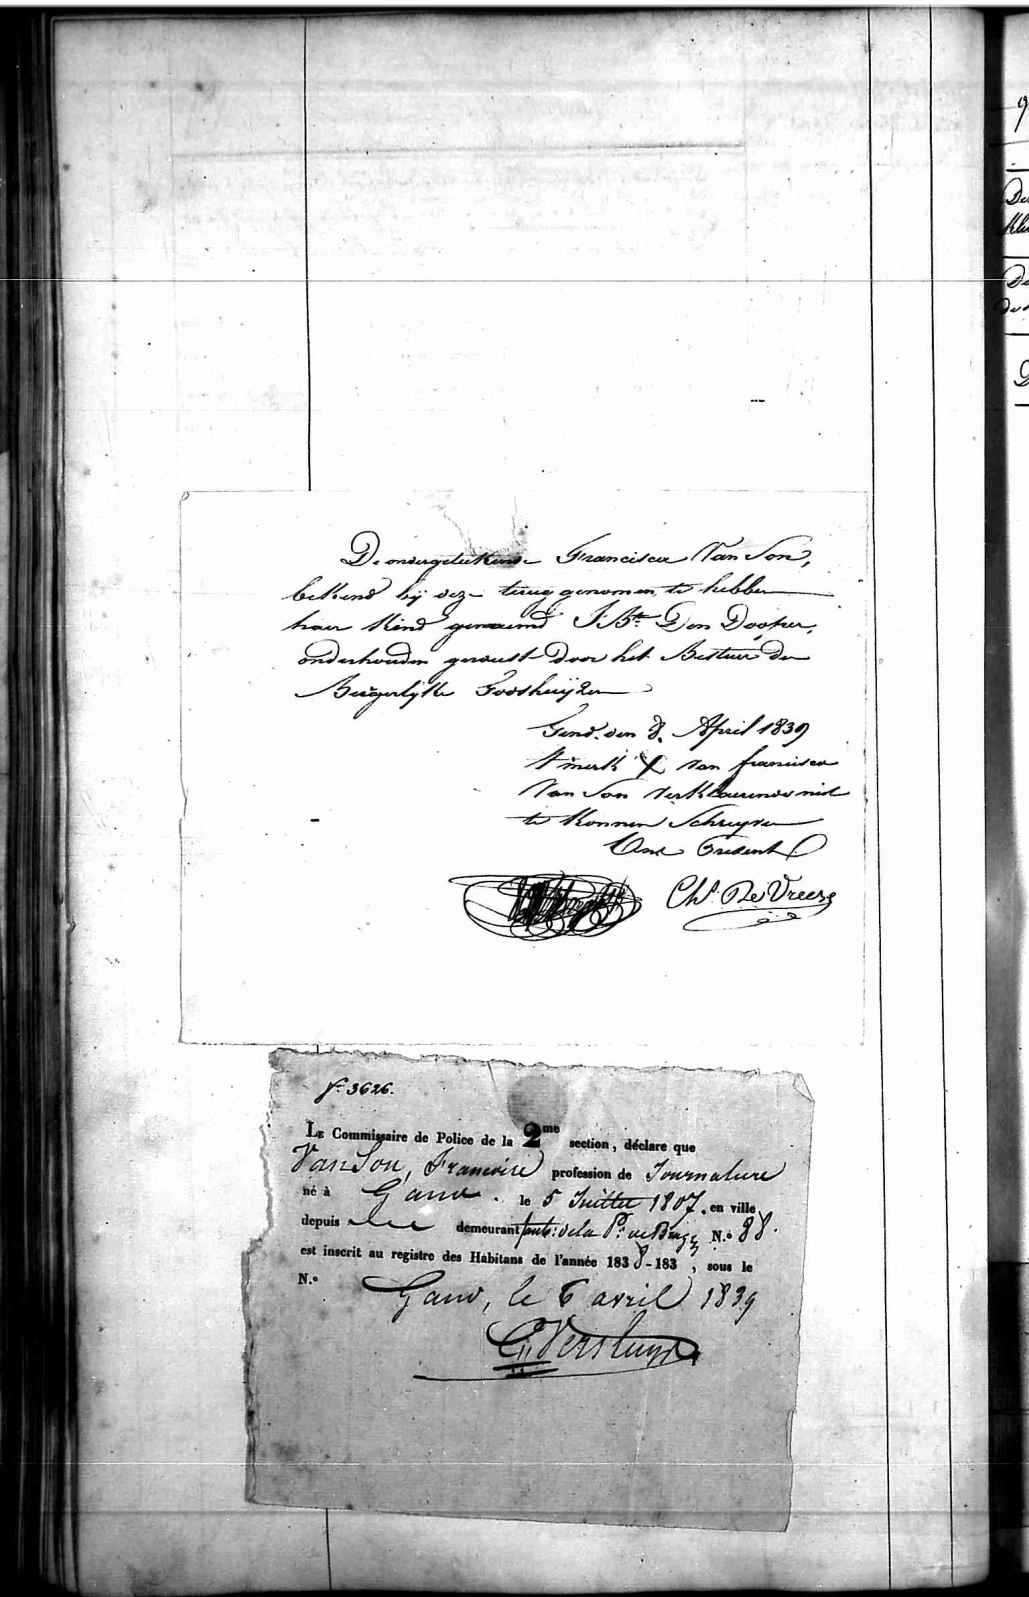 De ondergeteekende Francisca Van Son,
bekend bij deze terug genomen te hebben
haer Kind genaemd J: Bte Den Dooper,
onderhouden geweest door het Bestuer der
Burgerlyke Godshuijzen
Gend. den 8. April 1839
t'merk X van francisca
Van Son verklaerende niet
te konnen Schryven
Ons Present
Chs. De Vreese
fo 3626.
LE Commissaire de Police de la 2me section, déclare que
Van Son, Francoise profession de Journaliere
né à Gand. le 5 Juillet 1807. en ville
depuis demeurant de la Pte de Brug. N.° 88.
est inscrit au registre des Habitans de l'année 1838-183 , sous le
N.°
Gand, le 6 avril 1839
Versluys